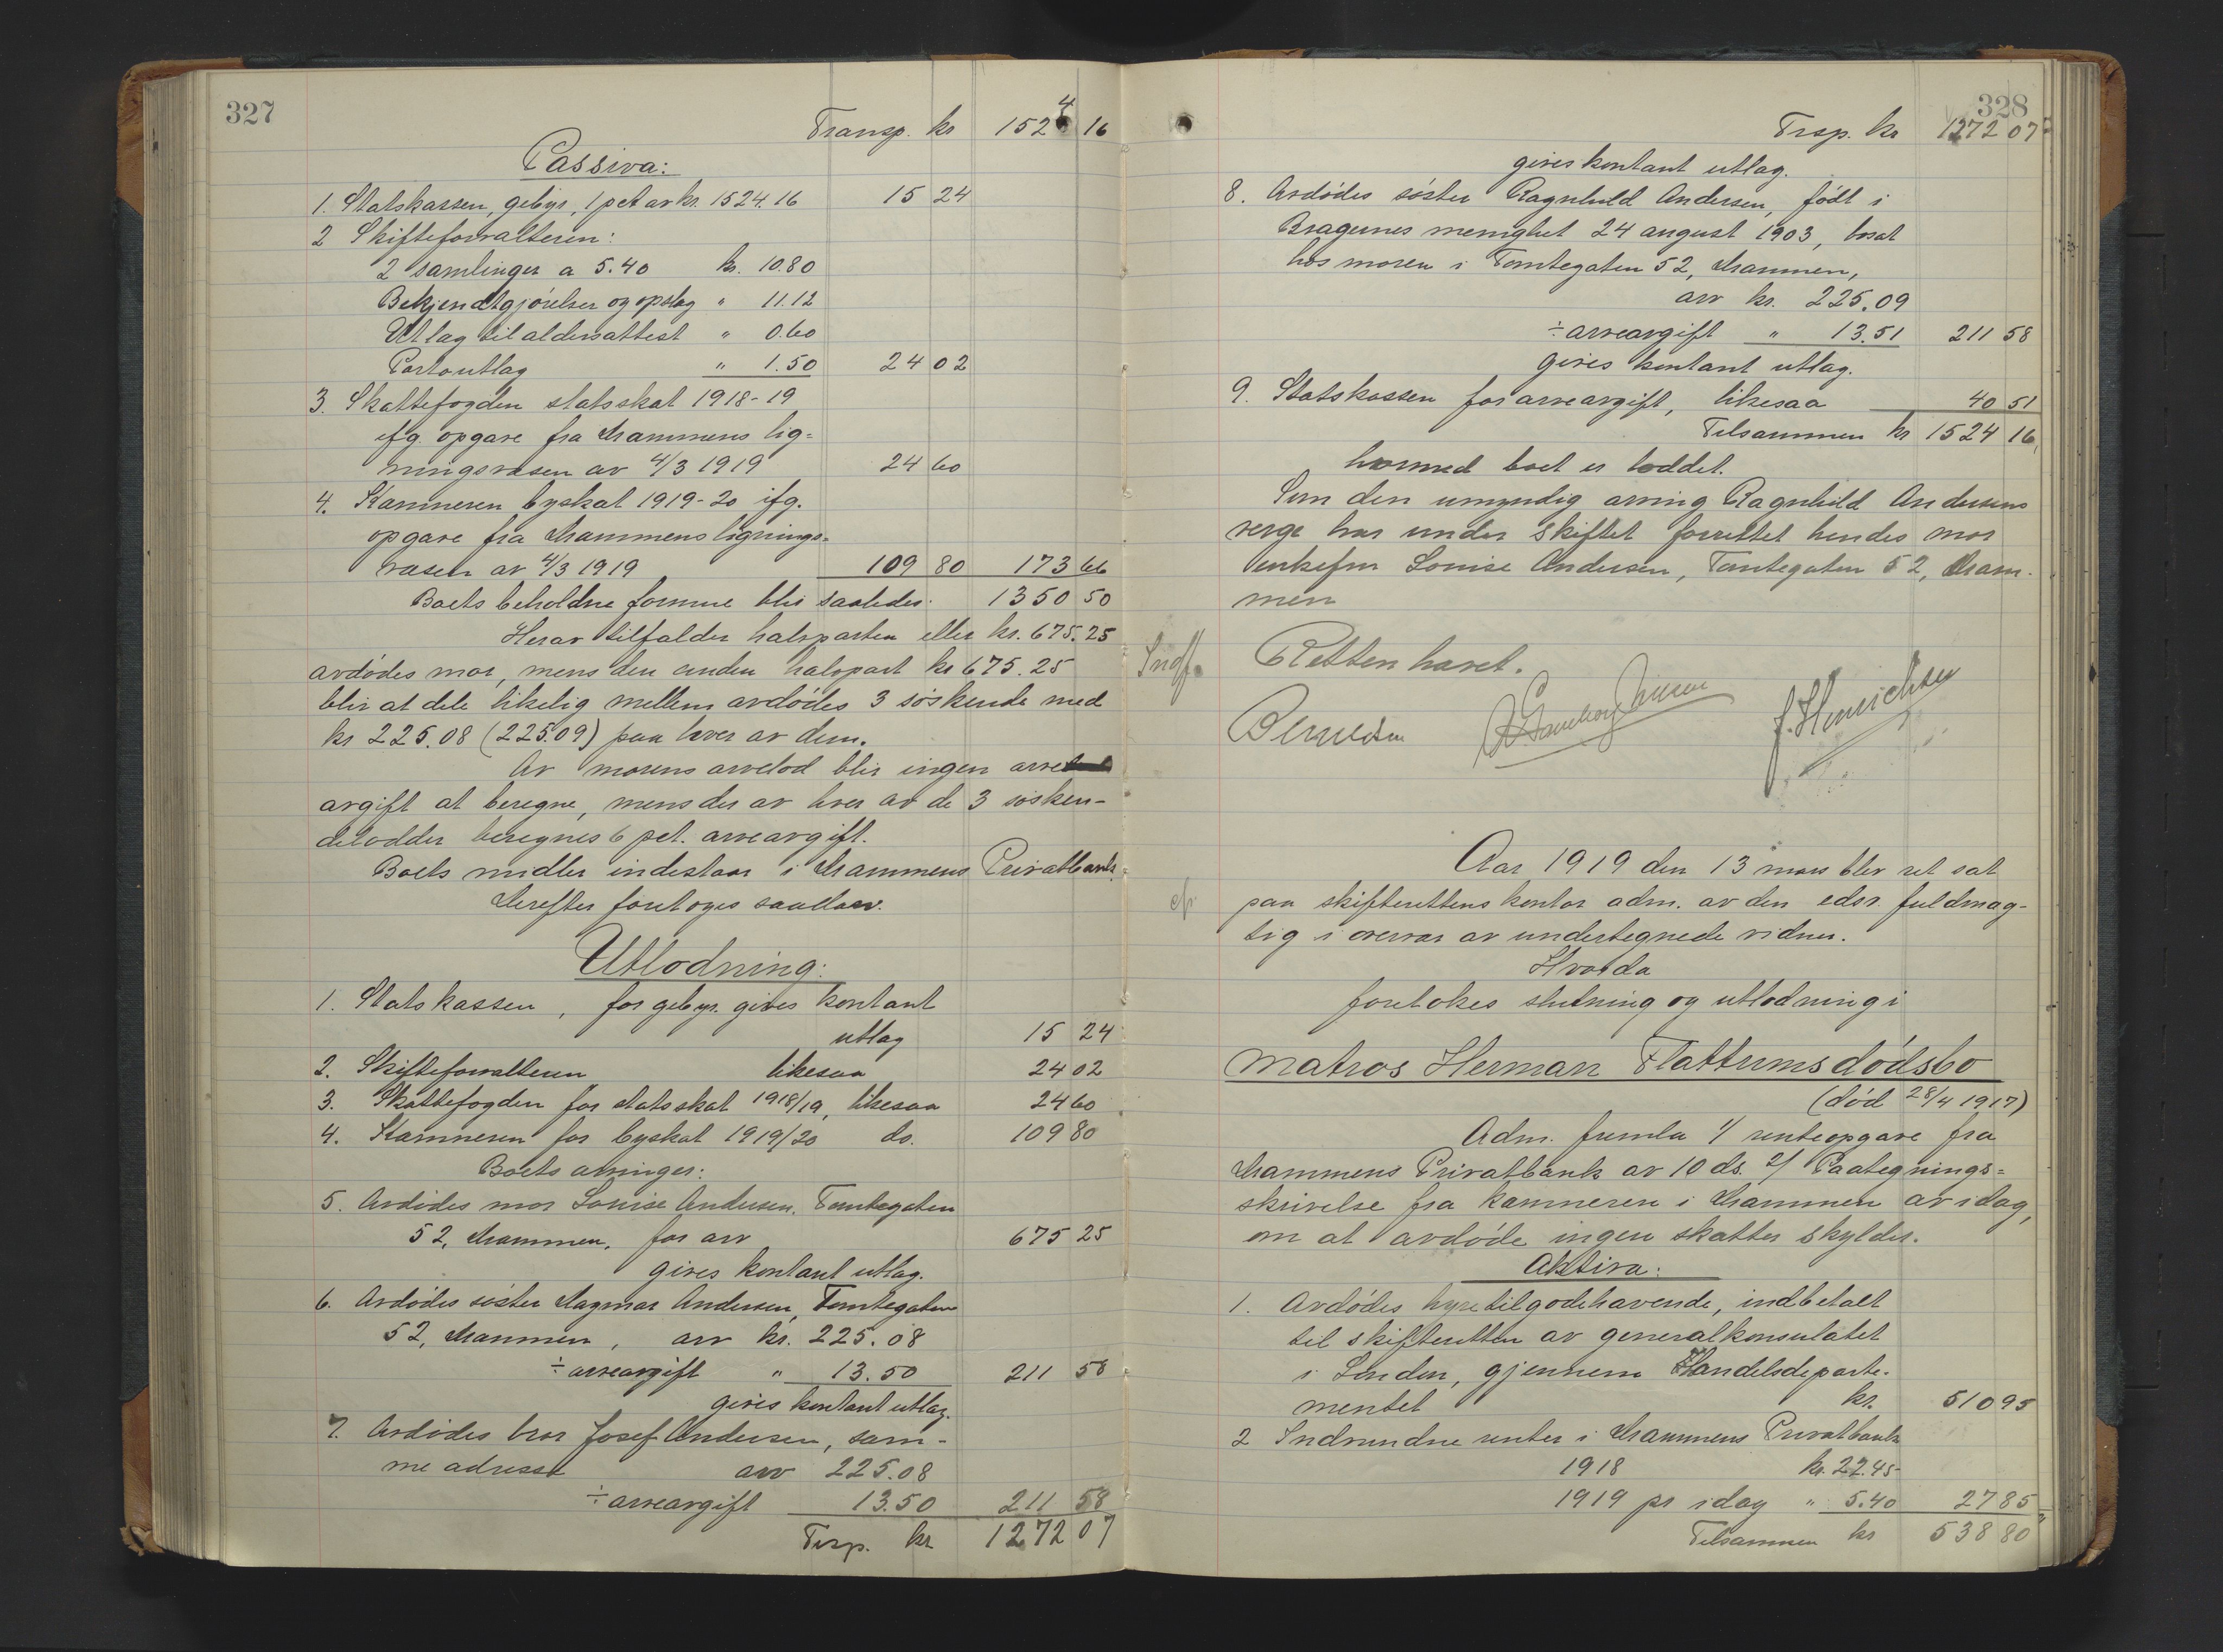 327
Transp. kr 1524 16
Passiva:
1. Statskassen, gebyr, 1 pct av kr. 1524.16 15 24
2 Skifteforvalteren:
2 samlinger a 5.40 kr. 10.80
Bekjendtgjørelser og opslag " 11.12
Utlag til aldersattest " 0.60
Portoutlag " 1.50 24 02
3. Skattefogden statsskat 1918-19
ifg. opgave fra Drammens lig=
ningsvæsen av 4/3 1919 24 60
4. Kæmneren byskat 1919-20 ifg.
opgave fra Drammens lignings=
væsen av 4/3 1919 109 80 173 66
Boets beholdne formue blir saaledes: 1350 50
Herav tilfalder halvparten eller kr. 675.25
avdødes mor, mens den anden halvpart kr 675.25
blir at dele likelig mellem avdødes 3 søskende med
kr 225.08 (225.09) paa hver av dem.
Av morens arvelod blir ingen arve
avgift at beregne, mens der av hver av de 3 søsken-
delodder beregnes 6 pct. arveavgift.
Boets midler indestaar i Drammens Privatbank.
Derefter foretoges saadan
Utlodning:
1. Statskassen, for gebyr. gives kontant
utlag 15 24
2. Skifteforvalteren likesaa 24 02
3. Skattefogden for statsskat 1918/19, likesaa 24 60
4. Kæmneren for byskat 1919/20 do. 109 80
Boets arvinger:
5. Avdødes mor Louise Andersen, Tomtegaten
52, Drammen, for arv 675 25
gives kontant utlag.
6. Avdødes søster Dagmar Andersen, Tomtegaten
52, Drammen, arv kr. 225.08
÷ arveavgift " 13.50 211 58
gives kontant utlag.
7. Avdødes bror Josef Andersen, sam-
me adresse arv 225.08
÷ arveavgift 13.50 211 58
Trsp. kr 1272 07
328
Trsp. kr 1272 07
gives kontant utlag.
8. Avdødes søster Ragnhild Andersen, født i
Bragernes menighet 24 august 1903, bosat
hos moren i Tomtegaten 52, Drammen,
arv kr. 225.09
÷ arveavgift " 13.51 211 58
gives kontant utlag.
9. Statskassen for arveavgift, likesaa 40 51
Tilsammen kr 1524 16
hvormed boet er loddet.
Som den umyndig arving Ragnhild Andersens
verge har under skiftet forrettet hendes mor
enkefru Louise Andersen, Tomtegaten 52, Dram-
men
Indf. Retten hævet.
J. Henrichsen
Aar 1919 den 13 mars blev ret sat
paa skifterettens kontor adm. av den edsv. fuldmæg-
tig i overvær av undertegnede vidner.
Hvorda
foretokes slutning og utlodning i
Matros Herman Flattums dødsbo
(død 28/4 1917)
Adm. fremla 1/ renteopgave fra
Drammens Privatbank av 10 ds. 2/ Paategnings=
skrivelse fra kæmneren i Drammen av idag,
om at avdøde ingen skatter skylder.
Aktiva:
1. Avdødes hyretilgodehavende, indbetalt
til skifteretten av generalkonsulatet
i London, gjennem Handelsdeparte-
mentet kr. 510 95
2 Indvundne renter i Drammens Privatbank
1918 kr. 22.45
1919 pr idag " 5.40 27 85
Tilsammen kr 538 80